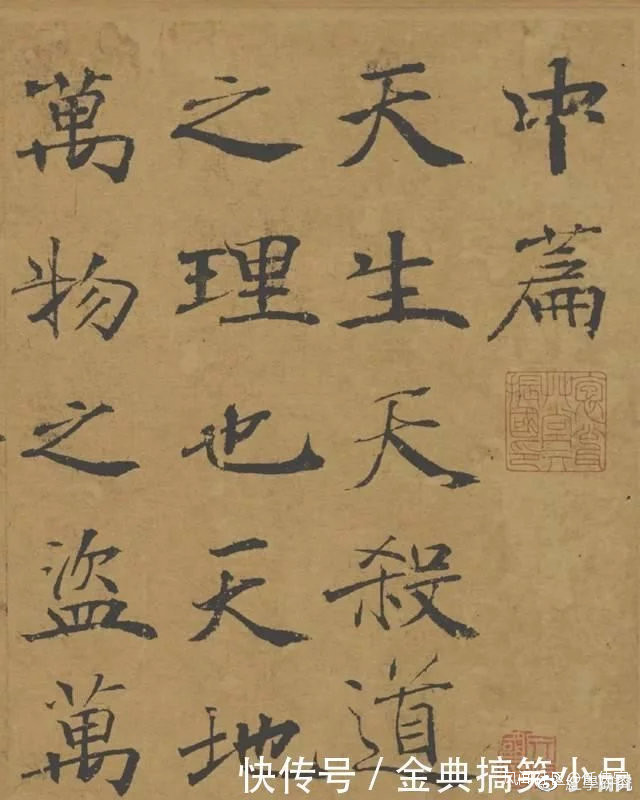 中篇
天生天殺道
之理也天地
萬物之盜萬
快传号 / 金典搞笑小品